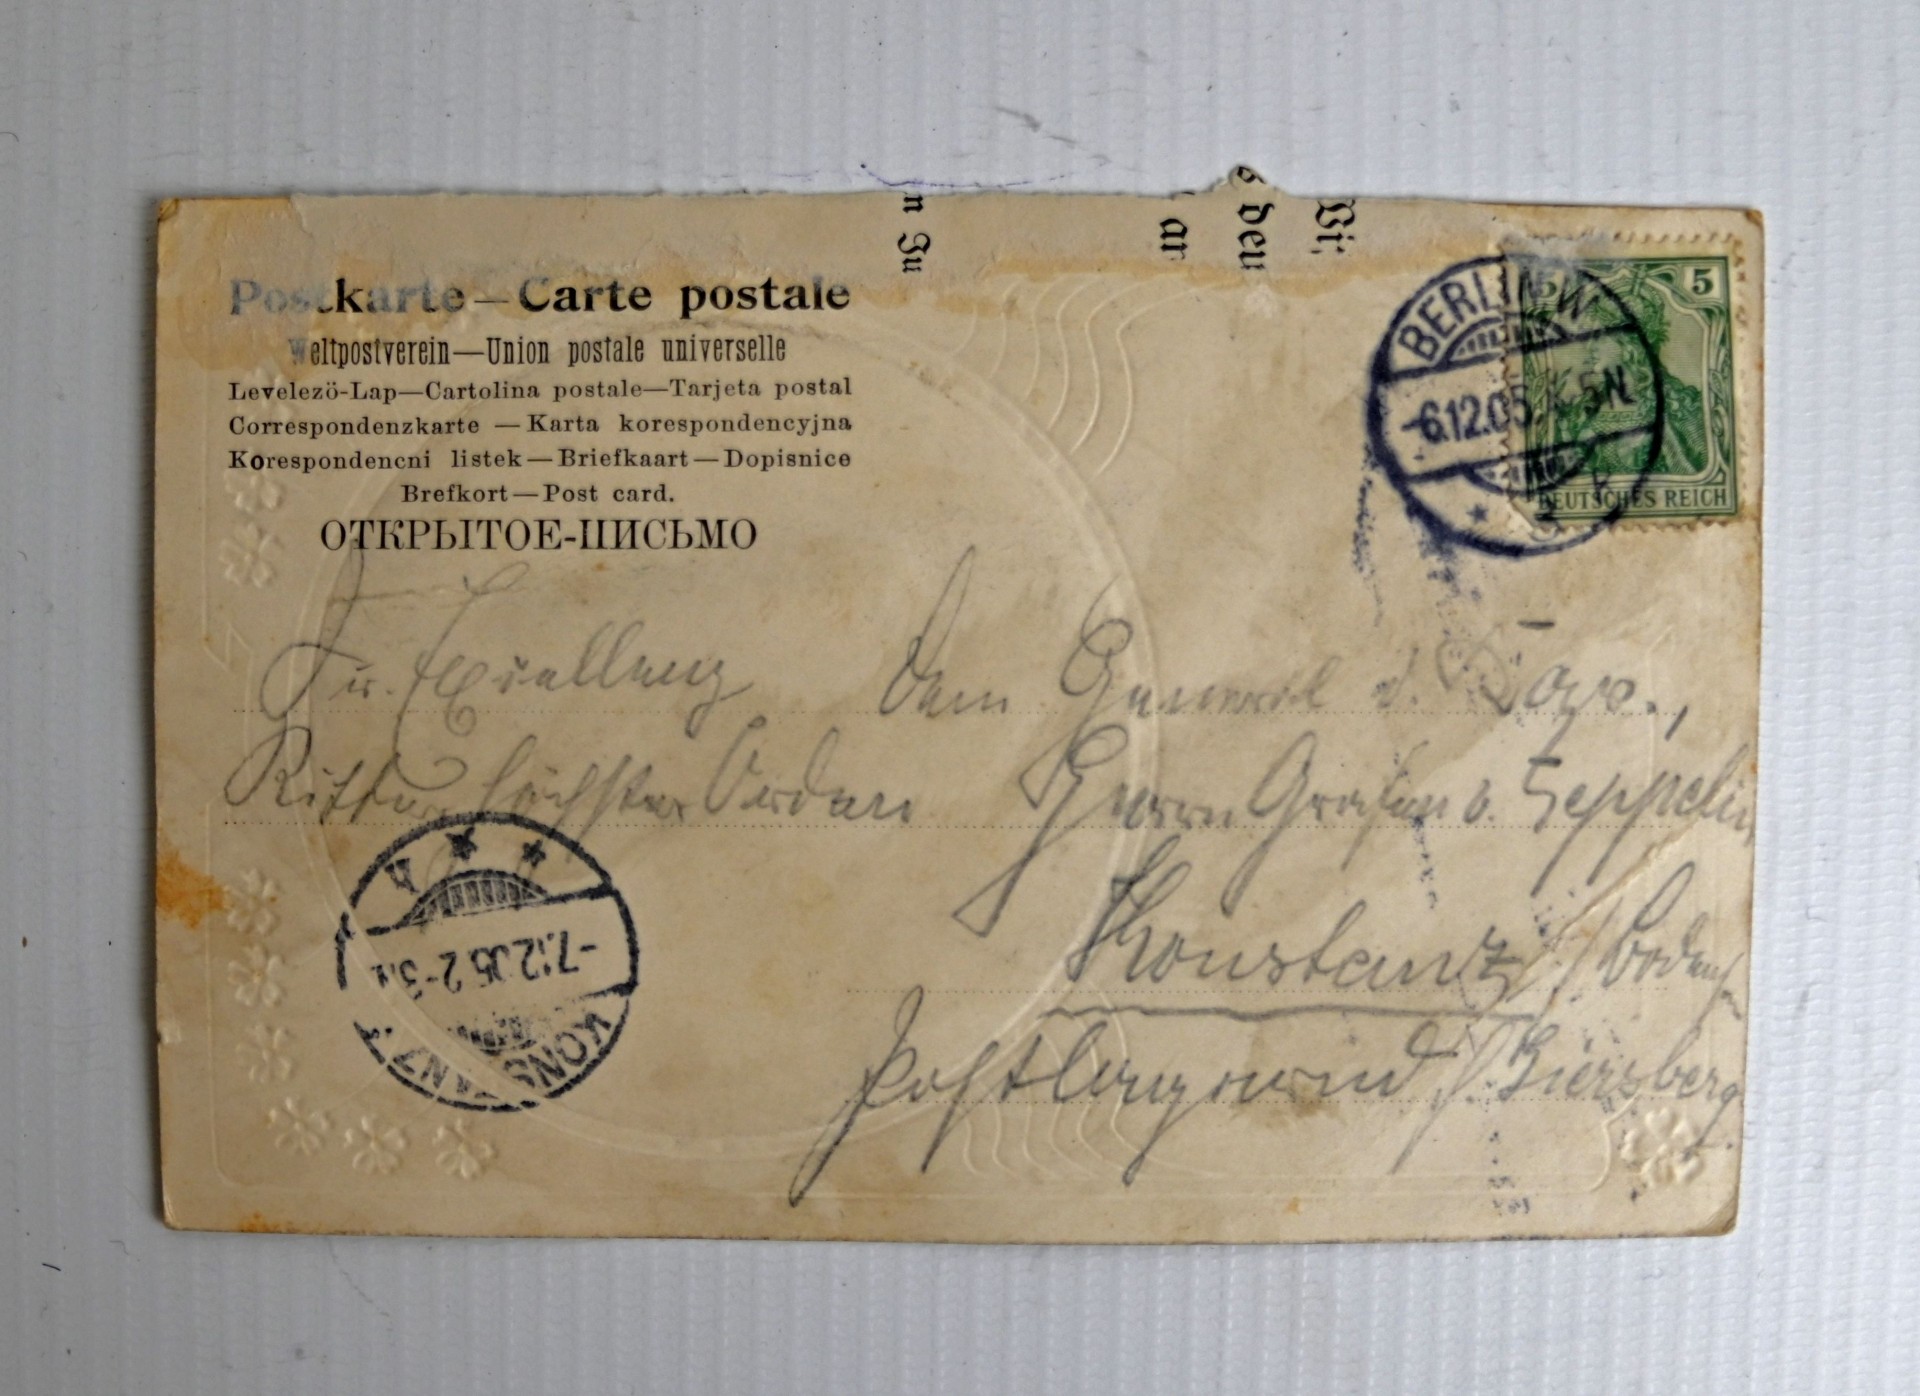 Postkarte — Carte postale
Weltpostverein—Union postale universelle
Levelezö-Lap—Cartolina postale—Tarjeta postal
Correspondenzkarte — Karta korespondencyjna
Korespondencni listek — Briefkaart — Dopisnice
Brefkort — Post card.
ОТКРЫТОЕ-ПИСЬМО
n Ju
ar
den
Wi
BERLIN W
-6.12.05. 5N
5 5
DEUTSCHES REICH
Sr. Excellenz dem General d. Cav.,
Ritter höchster Orden Herrn Grafen v. Zeppelin
Konstanz / Bodensee
postlagernd
KONSTANZ
-7.12.05 2-3N